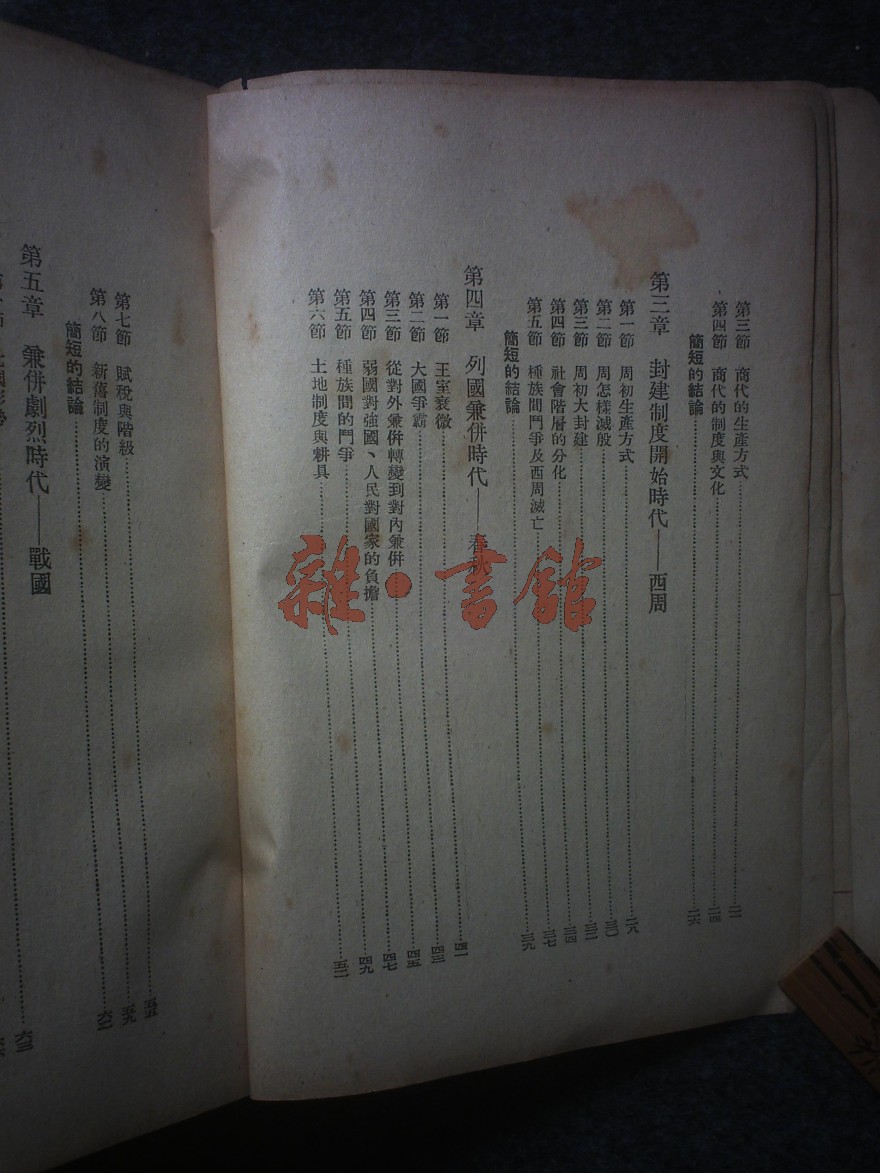 第三節 商代的生產方式
第四節 商代的制度與文化……二四
簡短的結論……二六
第三章 封建制度開始時代——西周
第一節 周初生產方式……二八
第二節 周怎樣滅殷……三〇
第三節 周初大封建
第四節 社會階層的分化……三四
第五節 種族間鬥爭及西周滅亡……三七
簡短的結論……三九
第四章 列國兼併時代——春秋
第一節 王室衰微
第二節 大國爭霸……四三
第三節 從對外兼併轉變到對內兼併……四五
第四節 弱國對強國、人民對國家的負擔……四七
第五節 種族間的鬥爭……四九
第六節 土地制度與耕具
雜·書館
第七節 賦稅與階級……五五
第八節 新舊制度的演變……五九
簡短的結論
第五章 兼併劇烈時代——戰國
六三